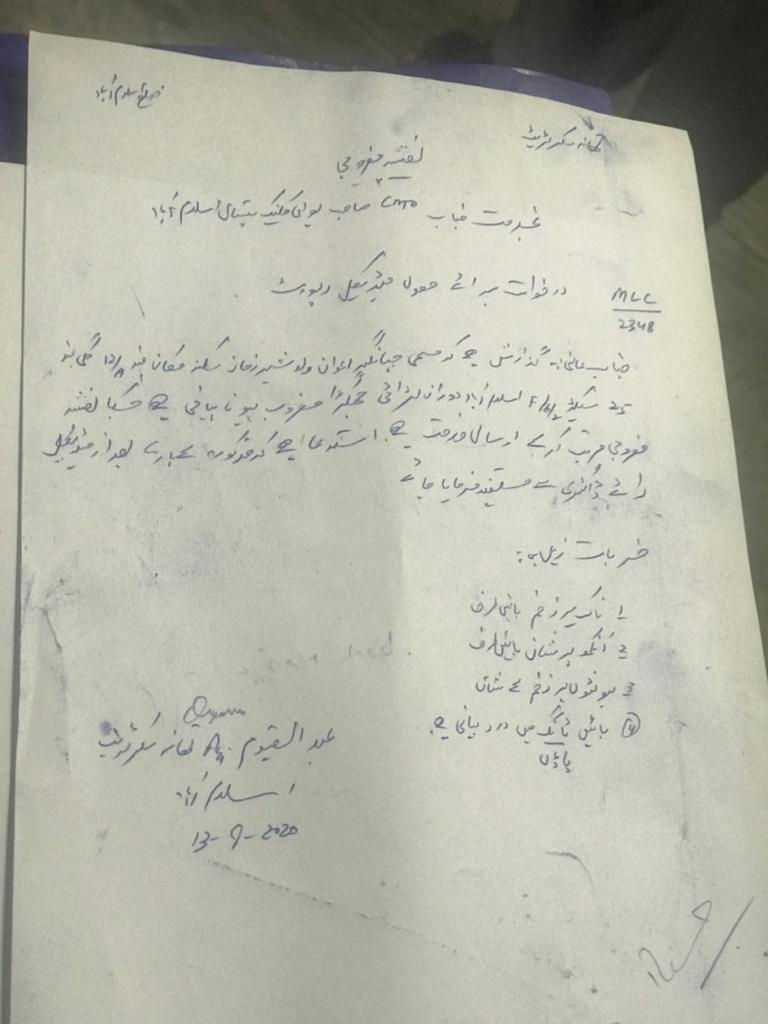 تھانہ سکرٹریٹ
ضلع اسلام آباد
نقشہ مضروبی
بخدمت جناب CMO صاحب پولی کلینک ہسپتال اسلام آباد
MLC
2348
درخواست برائے حصول میڈیکل رپورٹ
جناب عالی! گذارش ہے کہ مسمی جہانگیر اعوان ولد شیر زمان سکنہ مکان نمبر 12/A گلی نمبر
25 سیکٹر F/6/2 اسلام آباد دوران لڑائی جھگڑا مضروب ہونا بیانی ہے جسکا نقشہ
مضروبی مرتب کرکے ارسال خدمت ہے۔ استدعا ہے کہ مذکورہ کے بارے بعد از میڈیکل
رائے ڈاکٹری سے مستفید فرمایا جائے
ضربات ذیل ہے:
1 ناک پر زخم بائیں طرف
2 آنکھ پر نشان بائیں طرف
3 ہونٹوں پر زخم کے نشان
4 بائیں ٹانگ میں درد بیانی ہے۔
پاؤں
عبدالقیوم تھانہ سکرٹریٹ
اسلام آباد
13-9-2020